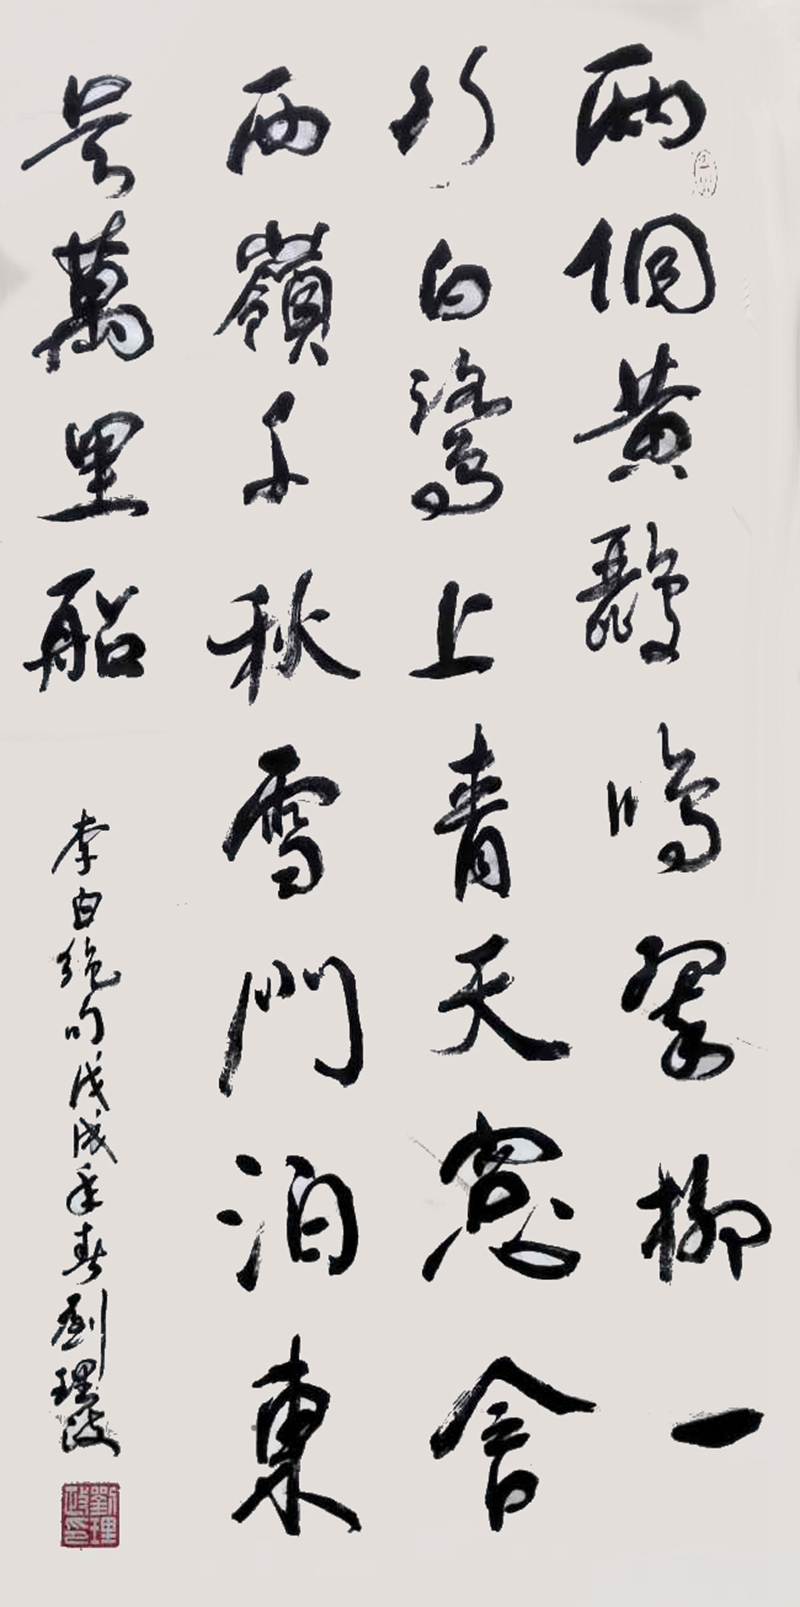 兩個黄鸝鳴翠柳一
行白鷺上青天窓含
西嶺千秋雪門泊東
吴萬里船
李白绝句戊戌年春劉理政
劉理政印